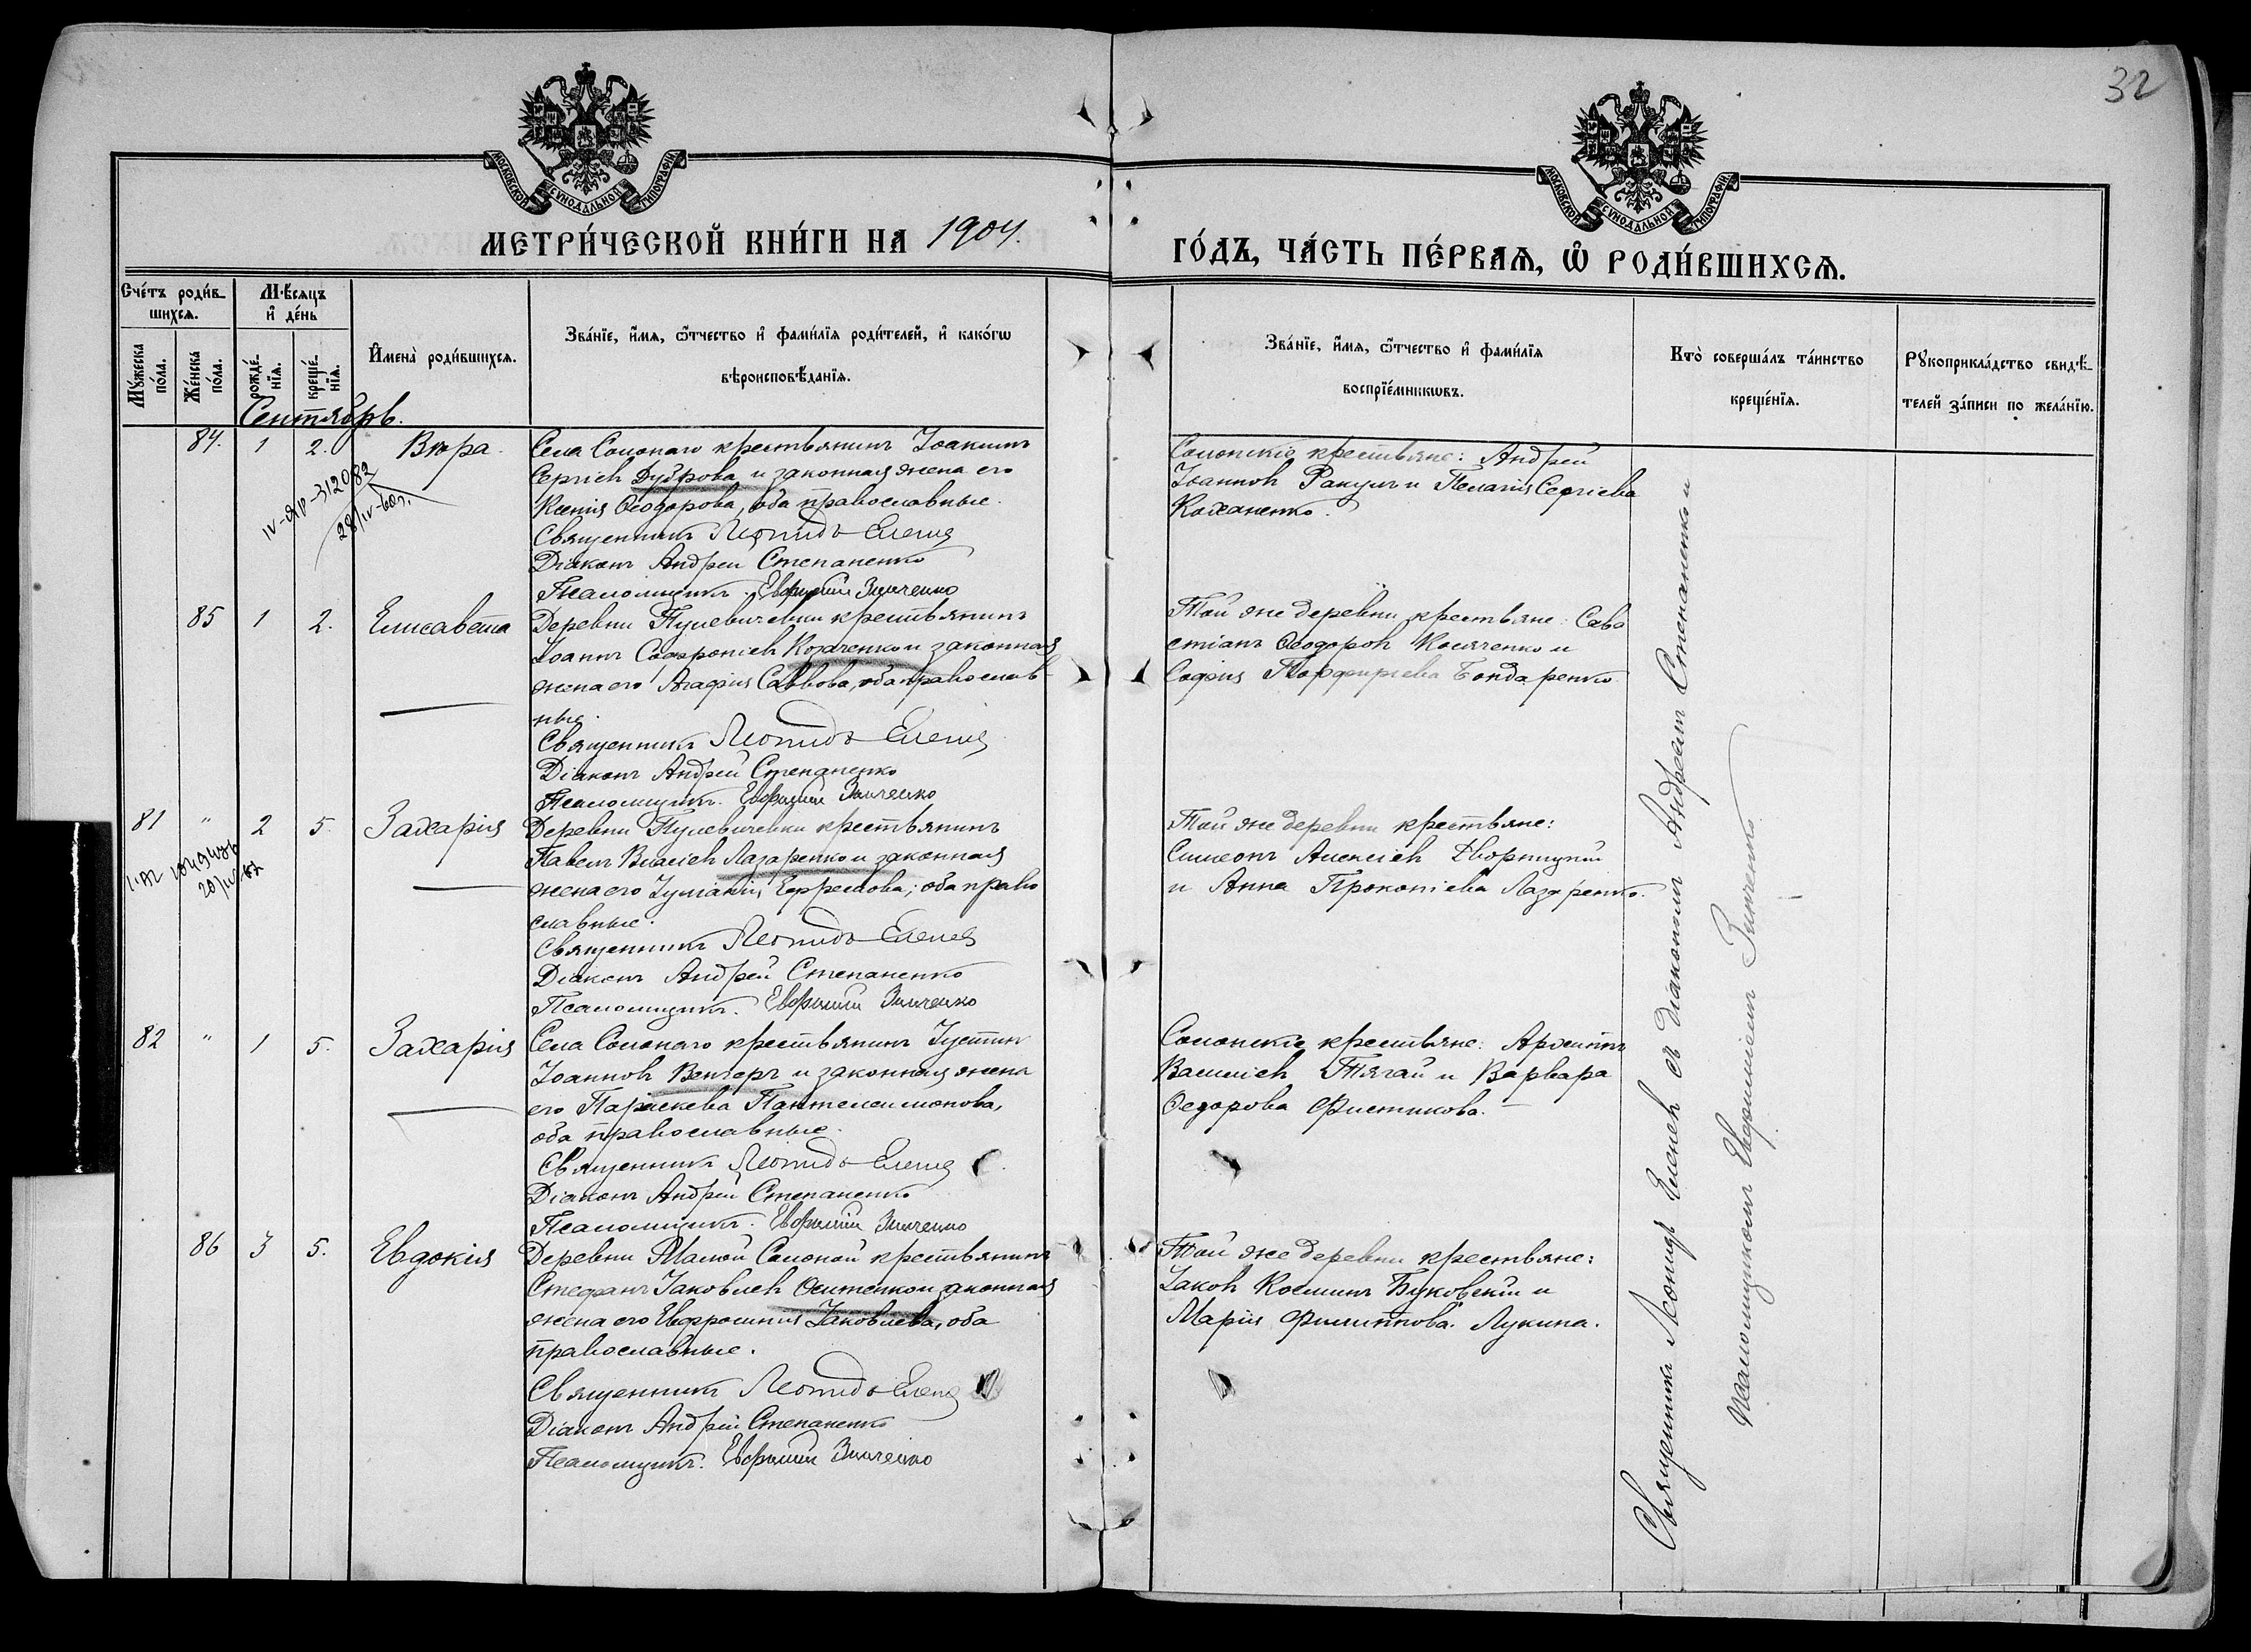 32
МОСКОВСКОЙ СѴНОДАЛЬНОЙ ТИПОГРАФІИ
МОСКОВСКОЙ СѴНОДАЛЬНОЙ ТИПОГРАФІИ
МЕТРИ́ЧЕСКОЙ КНИ́ГИ НА 1904.
ГО́ДЪ, ЧА́СТЬ ПЕ́РВАѦ, Ѡ҆ РОДИ́ВШИХСѦ.
Сче́тъ роди́в-
шихсѧ.
Мꙋ́жеска по́ла.
Же́нска по́ла.
Мѣ́сѧцъ и҆ де́нь
рожде́-
нїѧ.
креще́-
нїѧ.
И҆мена̀ роди́вшихсѧ.
Зва́нїе, и҆́мѧ, ѻ҆́тчество и҆ фами́лїѧ роди́телей, и҆ како́гѡ
вѣроисповѣ́данїѧ.
Зва́нїе, и҆́мѧ, ѻ҆́тчество и҆ фами́лїѧ
воспрїе́мникѡвъ.
Кто̀ соверша́лъ та́инство
креще́нїѧ.
Рꙋкоприкла́дство свидѣ́-
телей за́писи по жела́нїю.
Сентябрь.
84. 1 2. Вѣра.
Села Солонаго крестьянинъ Іоакимъ
Сергіевъ Дудрова и законная жена его
Ксенія Ѳеодорова, оба православные.
Священникъ Леонидъ Еленев
Діаконъ Андрей Степаненко
Псаломщикъ. Евфимій Зинченко
Солонскіе крестьяне: Андрей
Іоанновъ Ракулъ и Пелагія Сергіева
Каханенко.
IV-ЯР-312082
28/IV-60г.
85 1 2. Елисавета
Деревни Пулевичевки крестьянинъ
Іоаннъ Софроніевъ Козаченко и законная
жена его Агафія Саввова, оба православ-
ные.
Священникъ Леонидъ Еленев
Діаконъ Андрей Степаненко
Псаломщикъ. Евфимій Зинченко
Той же деревни крестьяне: Сава
стіанъ Ѳеодоровъ Косяченко и
Софія Порфиріева Бондаренко
81 " 2 5. Захарія
Деревни Пулевичевки крестьянинъ
Павелъ Власіевъ Лазаренко и законная
жена его Іуліанія Ефремова; оба право
славные.
Священникъ Леонидъ Еленев
Діаконъ Андрей Степаненко
Псаломщикъ. Евфимій Зинченко
Той же деревни крестьяне:
Симеонъ Алексіевъ Дворницкій
и Анна Прокопіева Лазаренко.
82 " 1 5. Захарія
Села Солонаго крестьянинъ Іустинъ
Іоанновъ Венгеръ и законная жена
его Параскева Пантелеимонова,
оба православные.
Священникъ Леонидъ Еленев
Діаконъ Андрей Степаненко
Псаломщикъ. Евфимій Зинченко
Солонскіе крестьяне: Архиппъ
Василіевъ Тягай и Варвара
Ѳеодорова Фистикова.
86 3 5. Евдокія
Деревни Малой Солоной крестьянинъ
Стефанъ Іаковлевъ Оситенко и законная
жена его Евфросинія Іаковлева, оба
православные.
Священникъ Леонидъ Еленев
Діаконъ Андрей Степаненко
Псаломщикъ. Евфимій Зинченко
Той же деревни крестьяне:
Іаковъ Косминъ Буковскій и
Марія Филиппова Лукина.
Священникъ Леонидъ Еленевъ съ діакономъ Андреемъ Степаненко и
псаломщикомъ Евфиміемъ Зинченко